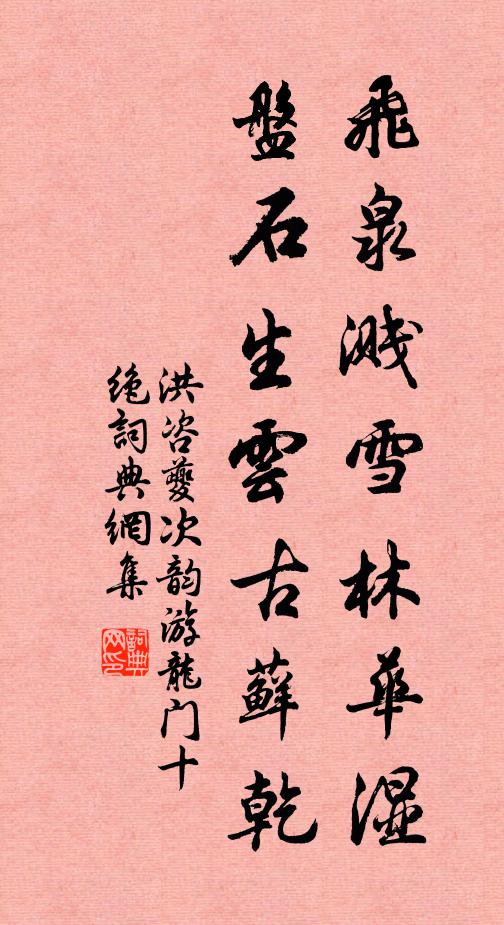 飛泉濺雪林華濕
盤石生雲古蘚乾
洪咨夔次韵游龍门十
绝詞典網集
詞典网印